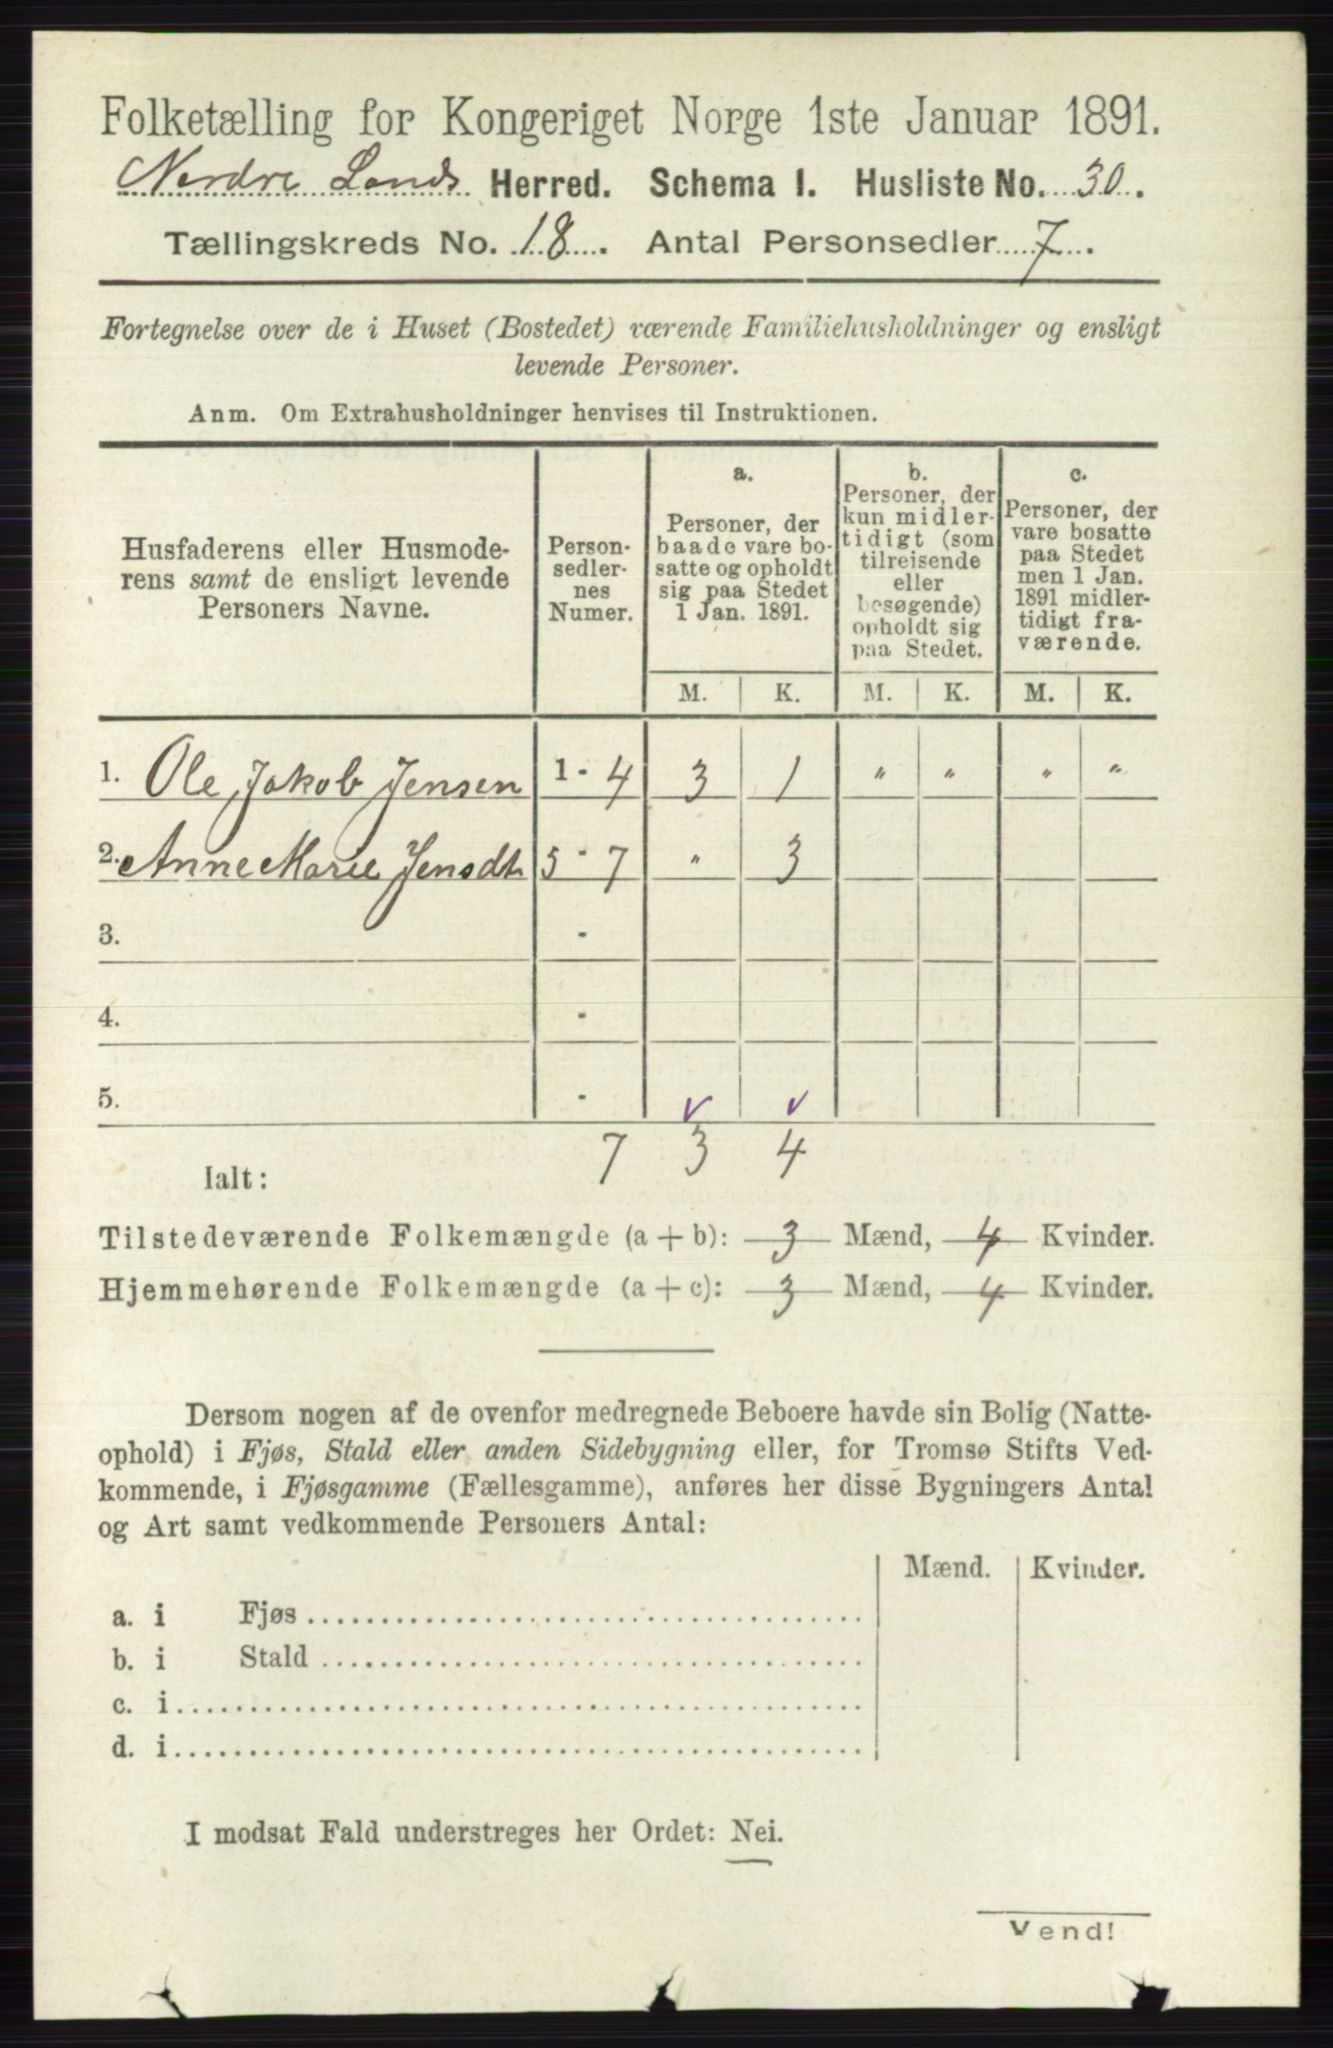 Folketælling for Kongeriget Norge 1ste Januar 1891.
Nordre Lands Herred. Schema I. Husliste No. 30.
Tællingskreds No. 18. Antal Personsedler 7.
Fortegnelse over de i Huset (Bostedet) værende Familiehusholdninger og ensligt
levende Personer.
Anm. Om Extrahusholdninger henvises til Instruktionen.
Husfaderens eller Husmode-
rens samt de ensligt levende
Personers Navne.
Person-
sedler-
nes
Numer.
a.
Personer, der
baade vare bo-
satte og opholdt
sig paa Stedet
1 Jan. 1891.
b.
Personer, der
kun midler-
tidigt (som
tilreisende
eller
besøgende)
opholdt sig
paa Stedet.
c.
Personer, der
vare bosatte
paa Stedet
men 1 Jan.
1891 midler-
tidigt fra-
værende.
M. K. M. K. M. K.
1. Ole Jakob Jensen 1 - 4 3 1 " " " "
2. Anne Marie Jensdt. 5 - 7 " 3
3. -
4. -
5. -
Ialt: 7 3 4
Tilstedeværende Folkemængde (a + b): 3 Mænd, 4 Kvinder.
Hjemmehørende Folkemængde (a + c): 3 Mænd, 4 Kvinder.
Dersom nogen af de ovenfor medregnede Beboere havde sin Bolig (Natte-
ophold) i Fjøs, Stald eller anden Sidebygning eller, for Tromsø Stifts Ved-
kommende, i Fjøsgamme (Fællesgamme), anføres her disse Bygningers Antal
og Art samt vedkommende Personers Antal:
Mænd. Kvinder.
a. i Fjøs
b. i Stald
c. i
d. i
I modsat Fald understreges her Ordet: Nei.
Vend!